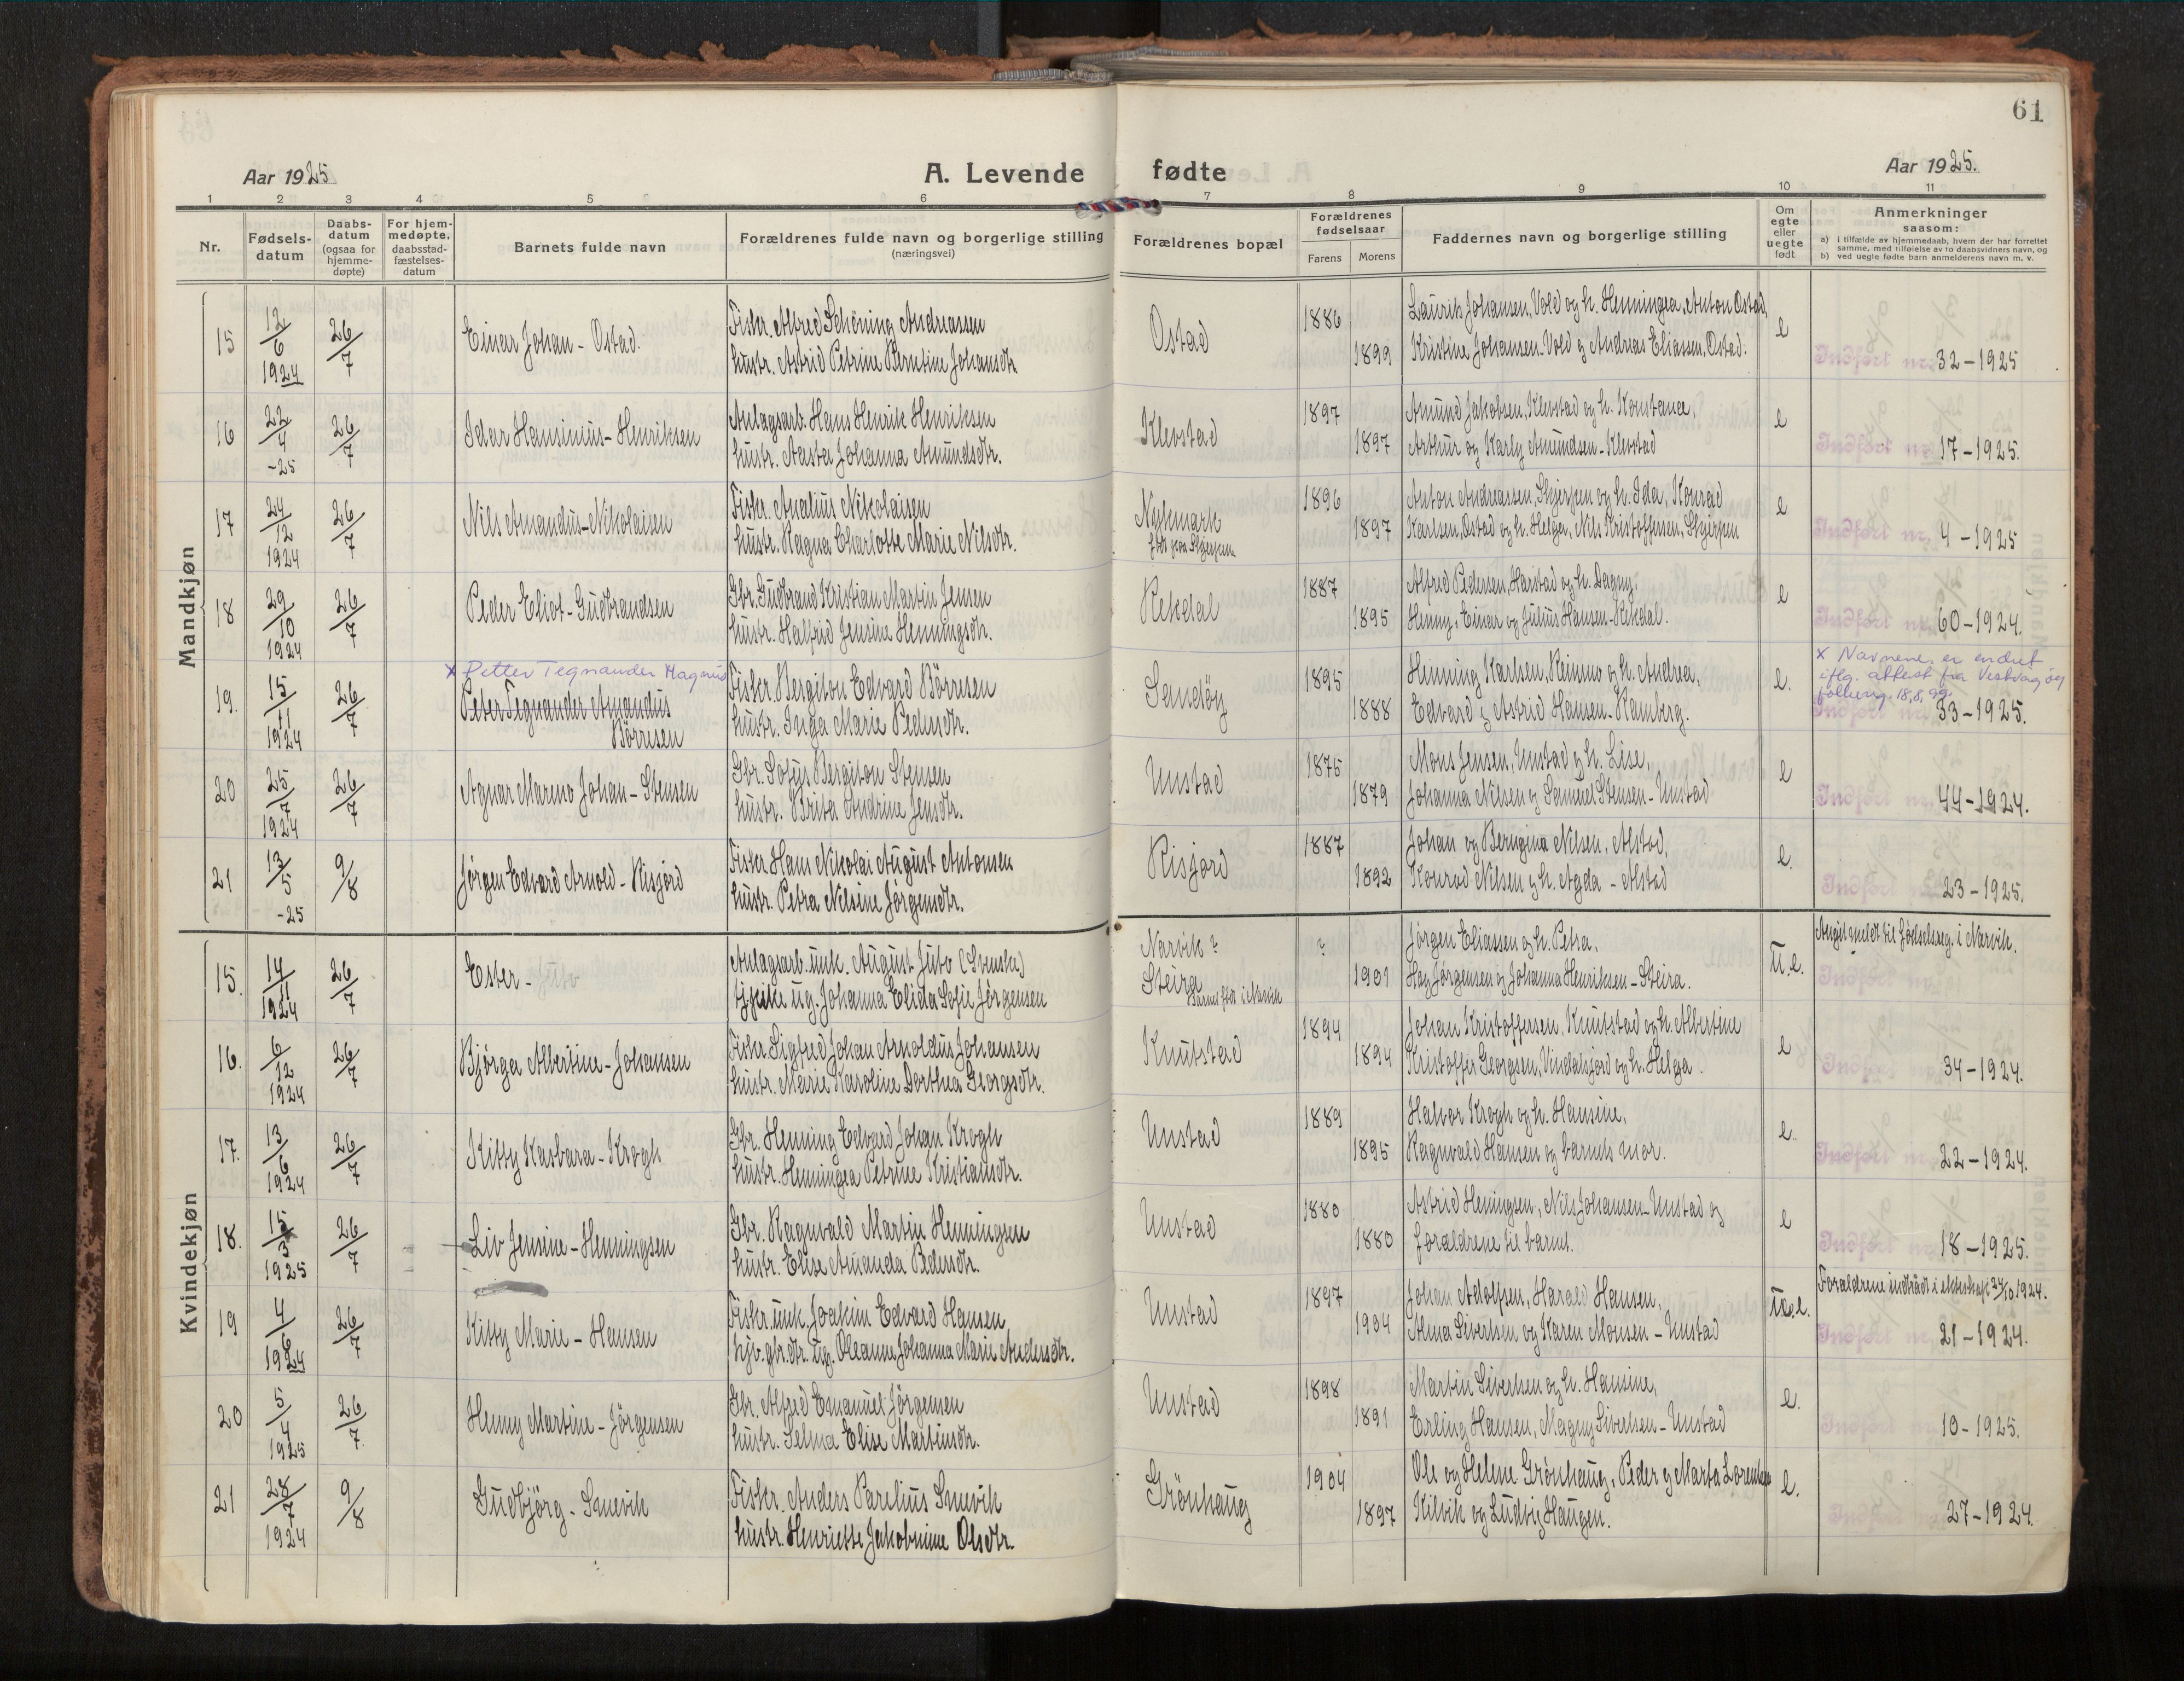 61
Aar 1925
A. Levende fødte
Aar 1925.
1 2 3 4 5 6 7 8 9 10 11
Nr.
Fødsels-
datum
Daabs-
datum
(ogsaa for
hjemme-
døpte)
For hjem-
medøpte,
daabsstad-
fæstelses-
datum
Barnets fulde navn
Forældrenes fulde navn og borgerlige stilling
(næringsvei)
Forældrenes bopæl
Forældrenes
fødselsaar
Farens
Morens
Faddernes navn og borgerlige stilling
Om
egte
eller
uegte
født
Anmerkninger
saasom:
a) i tilfælde av hjemmedaab, hvem der har forrettet
samme, med tilføielse av to daabsvidners navn, og
b) ved uegte fødte barn anmelderens navn m. v.
Mandkjøn
15 12/6 1924 26/7 Einar Johan - Ostad.
Fisker Alfred Schöning Andreassen
hustr. Astrid Petrine Berntine Johansdtr.
Ostad 1886 1899
Laurits Johansen, Vold og h. Henningea, Anton Ostad,
Kristine Johansen-Vold og Andreas Eliassen, Ostad.
e
Indført nr. 32-1925
16 22/4 -25 26/7 Idar Hansinius-Henriksen
Anlagsarb. Hans Henrik Henriksen
hustr. Aasta Johanna Amundsdtr.
Klevstad 1897 1897
Amund Jakobsen, Klevstad og h. Konstance,
Arthur og Karly Amundsen-Klevstad
e
Indført nr. 17-1925.
17 24/12 1924 26/7 Nils Amandus-Nikolaisen
Fisker Analius Nikolaisen
hustr. Ragna Charlotte Marie Nilsdtr.
Nykmark
født paa Skjerpen
1896 1897
Anton Andreassen, Skjerpen og h. Ida, Konrad
Karlsen, Ostad og h. Helga, Nils Kristoffersen, Skjerpen
e
Indført nr. 4-1925
18 29/10 1924 26/7 Peder Eliot-Gudbrandsen
Gbr. Gudbrand Kristian Martin Jensen
hustr. Halfrid Jensine Henningsdtr.
Rekdal 1887 1895
Alfred Pedersen, Harstad og h. Dagny,
Henny, Einar og Julius Hansen-Rekdal.
e
Indført nr. 60-1924.
x Petter Tegnander Magnus
19. 15/11 1924 26/7 Peter Tegnander Amandus
Börresen
Fisker Bergiton Edvard Börresen
hustr. Inga Marie Pedersdtr.
Sandöy 1895 1888
Henning Karlsen, Reinmo og h. Andrea,
Edvard og Astrid Hansen-Ramberg.
e.
x Navnene er endret
iflg. attest fra Vestvågöy
folkereg. 18.8.99.
Indført nr. 33-1925.
20 25/7 1924 26/7 Agnar Mareno Johan-Stensen
Gbr. Sofus Bergiton Stensen
hustr. Brita Andrine Jensdtr.
Unstad 1875 1879
Mons Jensen, Unstad og h. Lise,
Johanna Nilsen og Samuel Stensen-Unstad
e
Indført nr. 44-1924.
21 13/5 -25 9/8 Jørgen Edvard Arnold-Risjord
Fisker Hans Nikolai August Antonsen
hustr. Petra Nelsine Jørgensdtr.
Risjord 1887 1892
Johan og Bergina Nilsen, Alstad,
Konrad Nilsen og h. Agda - Alstad
e.
Indført nr. 23-1925.
Kvindekjøn
15. 14/11 1924 26/7 Ester-
Anlagsarb. unk. August Juto (Svensk)
tjpike ug. Johanna Elida Sofie Jørgensen
Narvik?
Steira
Barnet født i Narvik
? 1901
Jørgen Eliassen og h. Petra,
Hag Jørgensen og Johanna Henriksen-Steira.
u.e.
Angit meldt til fødselsreg. i Narvik.
Indført nr.
16. 6/12 1924 26/7 Bjørga Albertine-Johansen
Fisker Sigfred Johan Arnoldus Johansen
hustr. Marie Karoline Dorthea Georgsdtr.
Knutstad 1894 1894
Johan Kristoffersen, Knutstad og h. Albertine
Kristoffer Georgsen, Vindalsjord og h. Helga.
e
Indført nr. 34-1924.
17. 13/6 1924 26/7 Kitty Karbara-Krogh
Gbr. Henning Edvard Johan Krogh
hustr. Henningea Petrine Kristiansdtr.
Unstad 1889 1895
Halvor Krogh og h. Hansine,
Ragnvald Hansen og barnets mor.
e.
Indført nr. 22-1924.
18. 15/3 1925 26/7 Liv Jensine-Henningsen
Gbr. Ragnvald Martin Henningsen
hustr. Elise Amanda Pedersdtr.
Unstad 1880 1880
Astrid Henningsen, Nils Johansen-Unstad og
foraldrene til barnet.
e
Indført nr. 18-1925.
19 4/6 1924 26/7 Kitty Marie-Hansen
Fisker unk. Joakim Edvard Hansen
hjv. gbr.dtr. ug. Oleanna Johanna Marie Andersdtr.
Unstad 1897 1904
Johan Adolfsen, Harald Hansen,
Alma Sivertsen og Karen Monsen-Unstad
u.e.
Foraldrene indtraadt i ekteskap 24/10 1924.
Indført nr. 21-1924.
20 5/4 1925 26/7 Henny Martine-Jörgensen
Gbr. Alfred Emanuel Jörgensen
hustr. Selma Elise Martinsdtr.
Unstad 1898 1891
Martin Sivertsen og h. Hansine,
Erling Hansen, Magny Sivertsen-Unstad
e.
Indført nr. 10-1925.
21 28/7 1924 9/8 Gudbjörg-Smevik
Fisker Anders Parelius Smevik
hustr. Henriette Jakobmine Olsdtr.
Grönhaug 1904 1897
Ole og Helene Grönhaug, Peder og Marta Lorentsen
Kilvik og Ludvig Haugen.
e.
Indført nr. 27-1924.